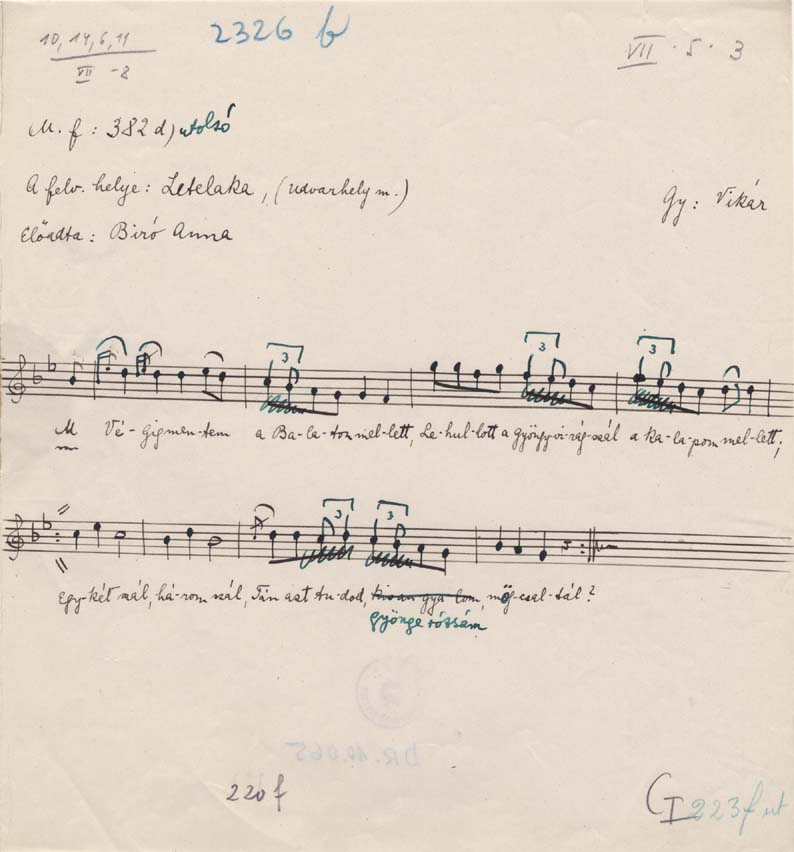 10, 14, 6, 11
VII -8
2326 b
VII · 5 · 3
M. f : 382 d) utolsó
A felv. helye: Letelaka, (Udvarhely m.)
Gy: Vikár
Előadta: Biró Anna
3 3 3
M Vé-gigmen-tem a Ba-la-ton mel-lett, Le-hul-lott a gyöngy-vi-rág-szál a ka-la-pom mel-lett;
3 3
Egy-két szál, há-rom szál, Tán azt tu-dod, mög-csal-tál?
gyönge rózsám
DR. 10.065
220 f
GI 223f ut